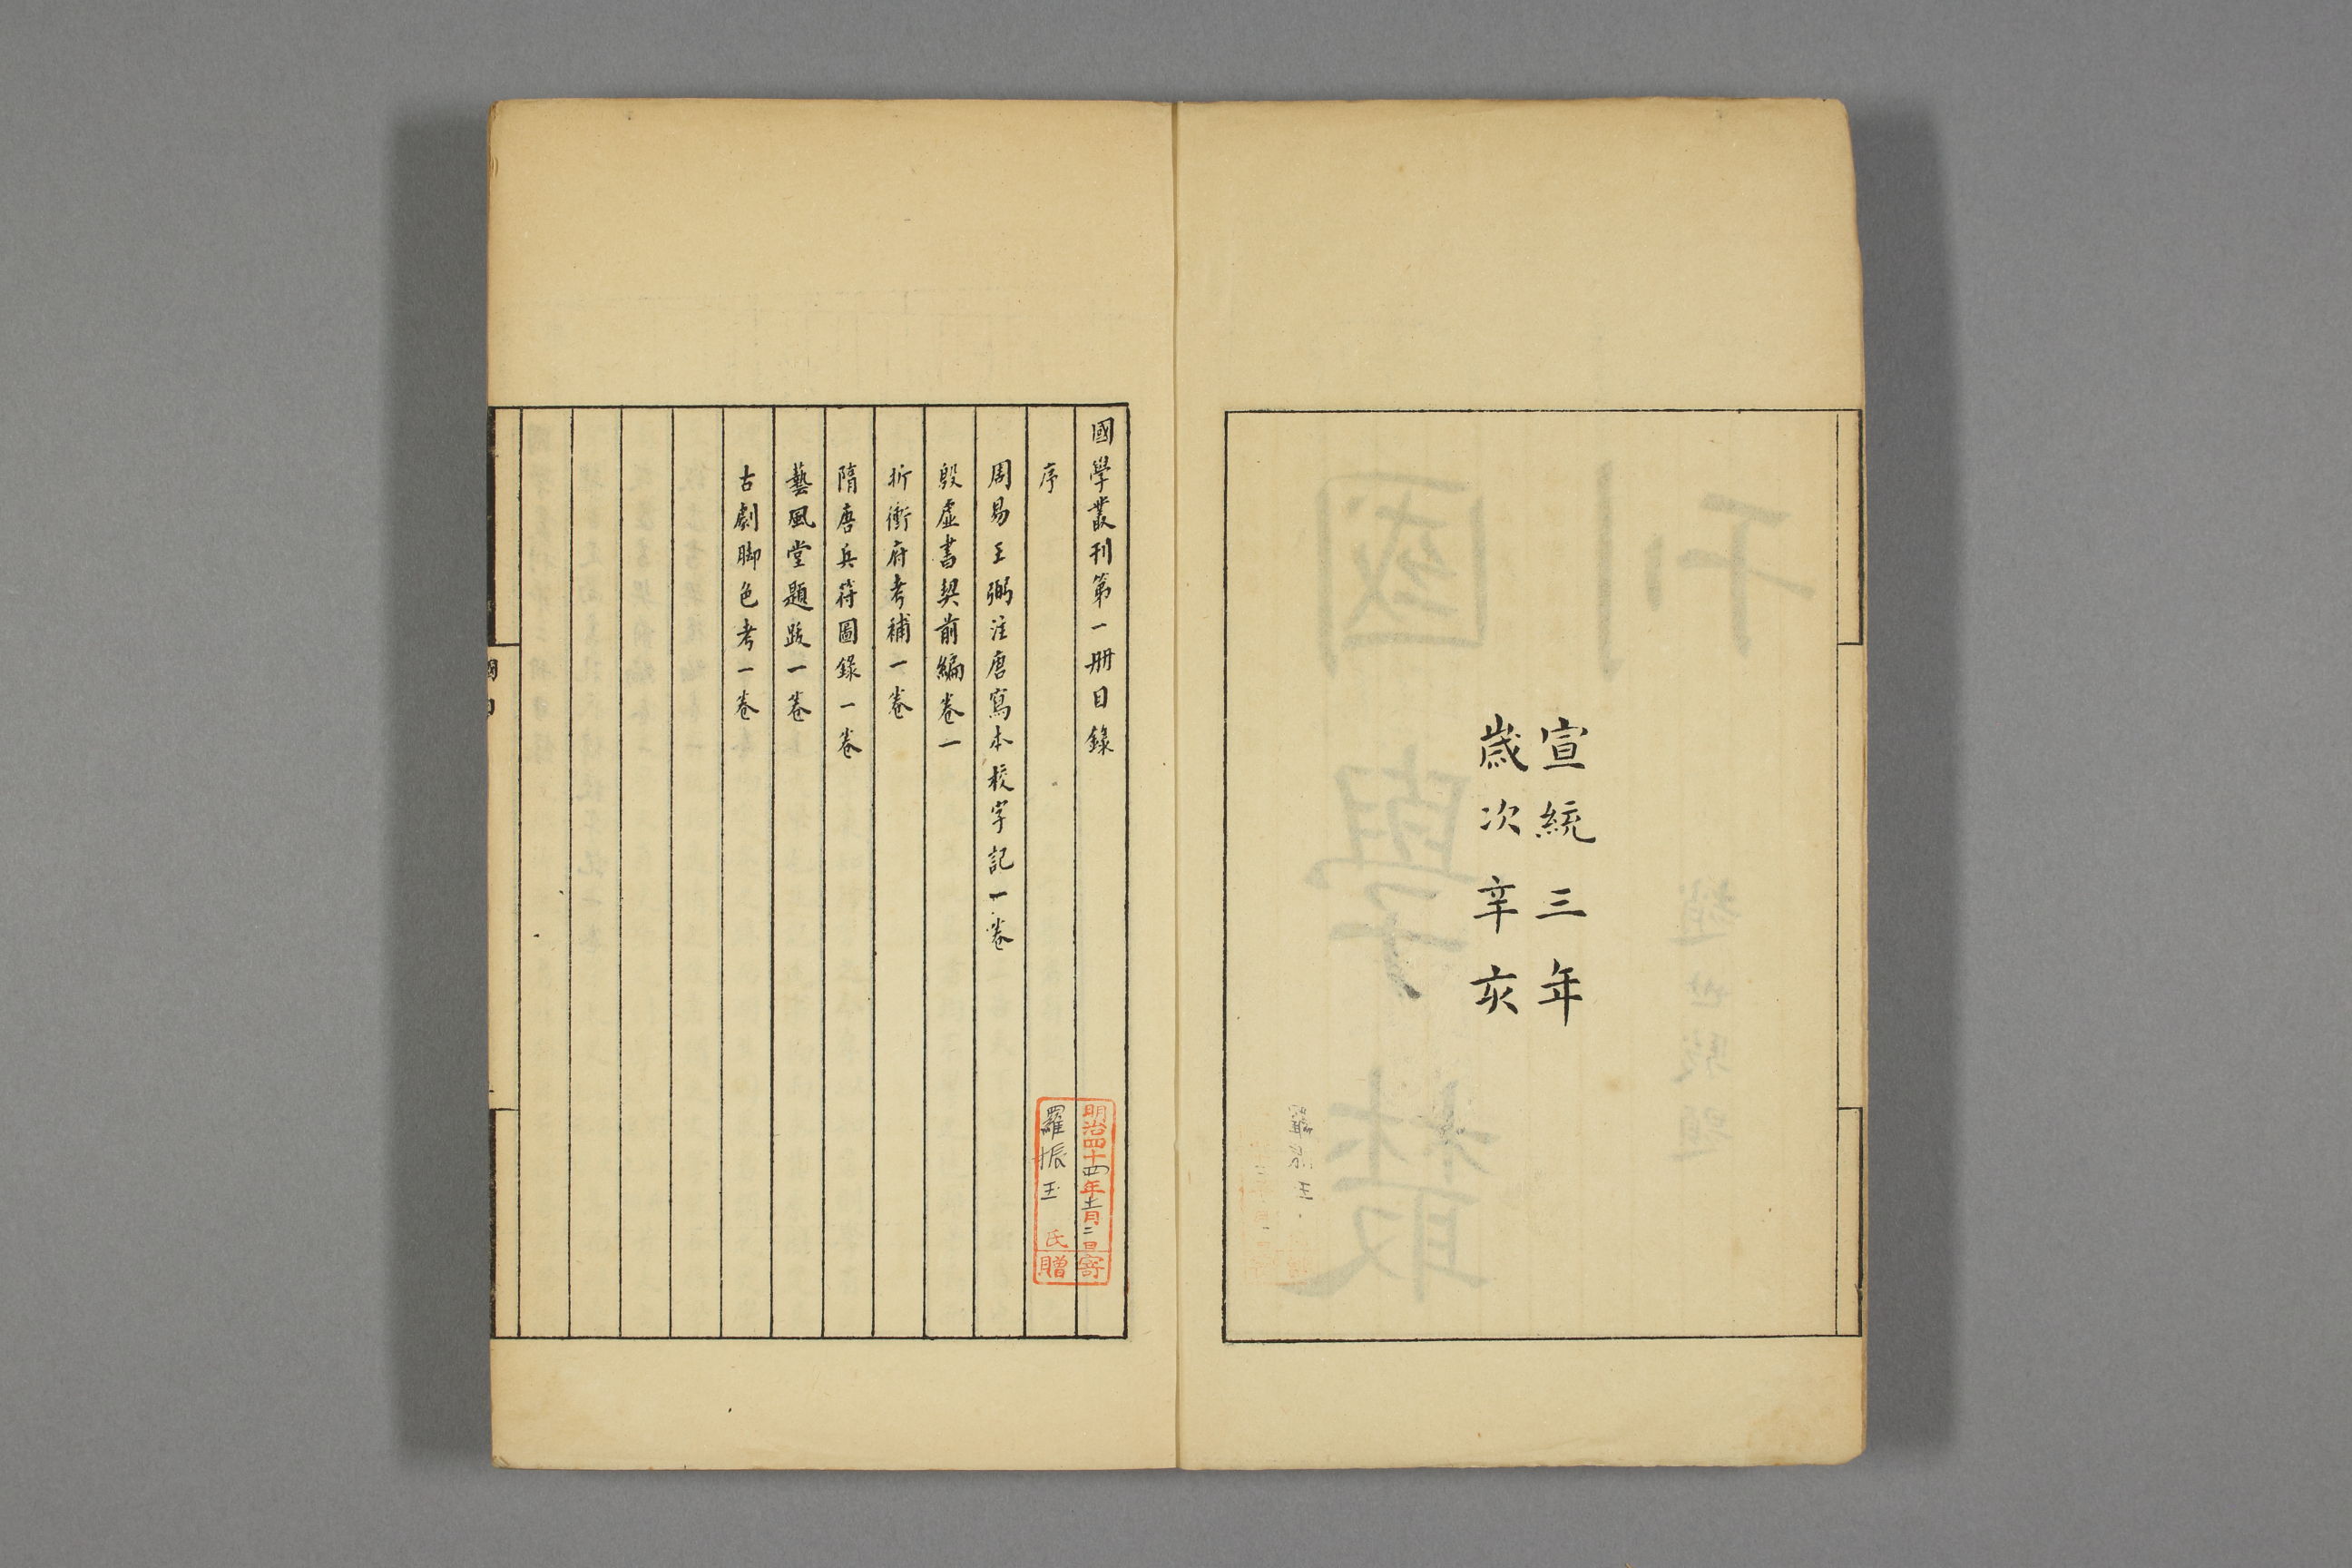 宣統三年
歲次辛亥
國學叢刊第一册目錄
序
周易王弼注唐寫本校字記一卷
殷虛書契前編卷一
折衝府考補一卷
隋唐兵符圖錄一卷
藝風堂題跋一卷
古劇脚色考一卷
明治四十四年十一月二日寄
羅振玉氏贈